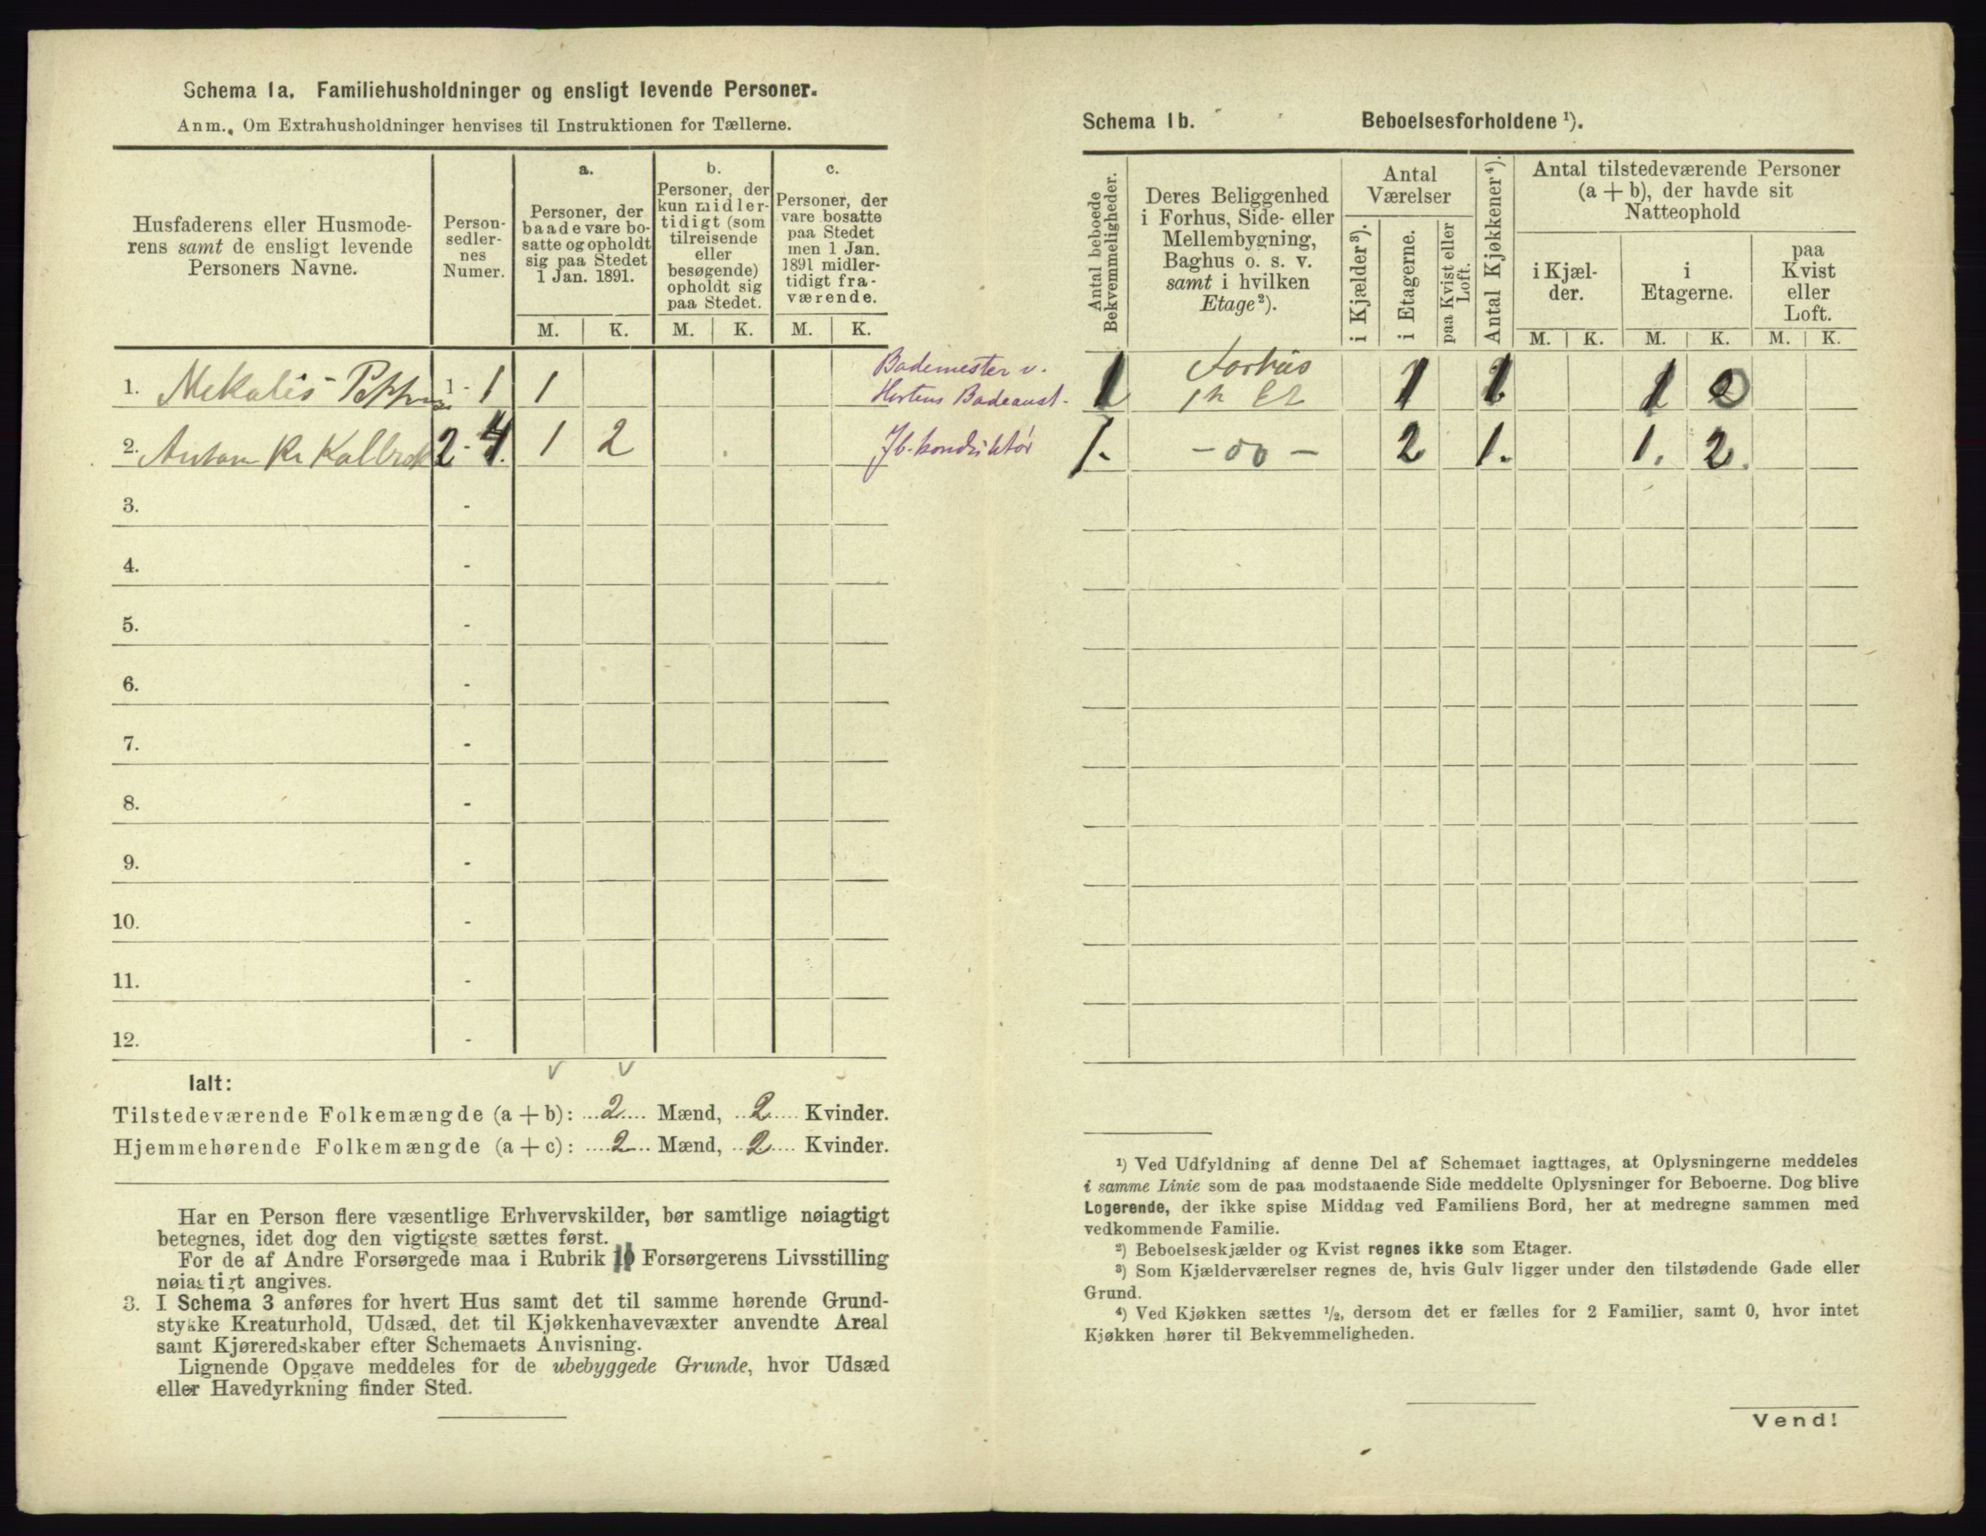 Schema 1a. Familiehusholdninger og ensligt levende Personer.
Anm. Om Extrahusholdninger henvises til Instruktionen for Tællerne.
Husfaderens eller Husmode-
rens samt de ensligt levende
Personers Navne.
Person-
sedler-
nes
Numer.
a.
Personer, der
baade vare bo-
satte og opholdt
sig paa Stedet
1 Jan. 1891.
b.
Personer, der
kun midler-
tidigt (som
tilreisende
eller
besøgende)
opholdt sig
paa Stedet.
c.
Personer, der
vare bosatte
paa Stedet
men 1 Jan.
1891 midler-
tidigt fra-
værende.
M. K. M. K. M. K.
1. 1 - 1 1 Bademester v.
Hortens Badeanst.
2. Anton Kr 2 - 4. 1 2 Jb. konduktør
3. -
4. -
5. -
6. -
7. -
8. -
9. -
10. -
11. -
12. -
Ialt:
Tilstedeværende Folkemængde (a + b): 2 Mænd, 2 Kvinder.
Hjemmehørende Folkemængde (a + c): 2 Mænd, 2 Kvinder.
Har en Person flere væsentlige Erhvervskilder, bør samtlige nøiagtigt
betegnes, idet dog den vigtigste sættes først.
For de af Andre Forsørgede maa i Rubrik 10 Forsørgerens Livsstilling
nøiagtigt angives.
3. I Schema 3 anføres for hvert Hus samt det til samme hørende Grund-
stykke Kreaturhold, Udsæd, det til Kjøkkenhavevæxter anvendte Areal
samt Kjøreredskaber efter Schemaets Anvisning.
Lignende Opgave meddeles for de ubebyggede Grunde, hvor Udsæd
eller Havedyrkning finder Sted.
Schema 1b. Beboelsesforholdene ¹).
Antal beboede
Bekvemmeligheder.
Deres Beliggenhed
i Forhus, Side- eller
Mellembygning,
Baghus o. s. v.
samt i hvilken
Etage²).
Antal
Værelser
i Kjælder³).
i Etagerne.
paa Kvist eller
Loft.
Antal Kjøkkener⁴).
Antal tilstedeværende Personer
(a + b), der havde sit
Natteophold
i Kjæl-
der.
i
Etagerne.
paa
Kvist
eller
Loft.
M. K. M. K. M. K.
1 Forhus 1 1 1 0
1. - oo - 2 1. 1. 2.
¹) Ved Udfyldning af denne Del af Schemaet iagttages, at Oplysningerne meddeles
i samme Linie som de paa modstaaende Side meddelte Oplysninger for Beboerne. Dog blive
Logerende, der ikke spise Middag ved Familiens Bord, her at medregne sammen med
vedkommende Familie.
²) Beboelseskjælder og Kvist regnes ikke som Etager.
³) Som Kjælderværelser regnes de, hvis Gulv ligger under den tilstødende Gade eller
Grund.
⁴) Ved Kjøkken sættes ½, dersom det er fælles for 2 Familier, samt 0, hvor intet
Kjøkken hører til Bekvemmeligheden.
Vend!